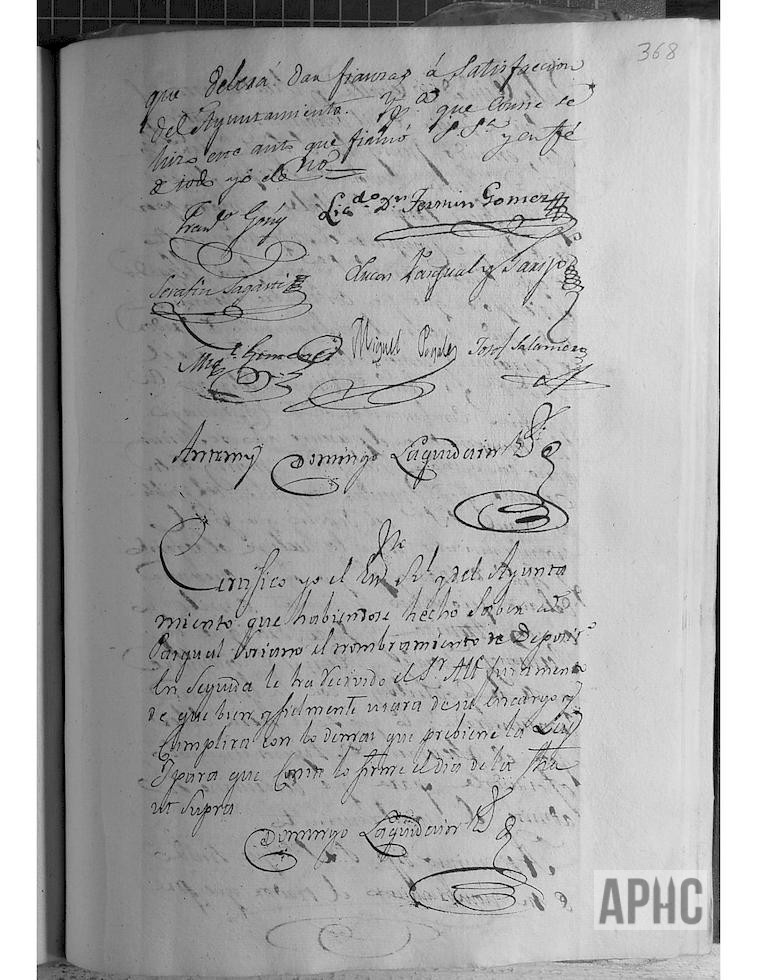 368
que deberá dar fianzas á satisfaccion
del Ayuntamiento. Y pa que conste se
hizo este auto que firmó S Sa y en fé
de todo yo el no
Franco Goñi Licdo Dn Fermin Gomez
Serafin Sagasti Lucas Pasqual y Tarijo
Migl Gimenez Miguel Perales Josef Salamero
Antemy Domingo Laguidain
Nte
Certifico yo el Sno Rl y del Ayunta
miento que habiendose hecho saber a Dn
Pasqual Soriano el nombramiento de Depositro
en Segunda le ha recivido el Sr Alle juramento
de que bien y fielmente usara de su encargo y
Cumplira con lo demas que prebiene la Ley
Y para que Conste lo firme el dia de la fha
ut supra
Domingo Laguidain
APHC